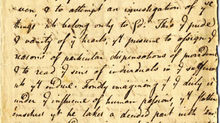 even & to attempt an investigation of ye
things yt belong only to God. This I judge
& vanity of ye hearts, yt presume to assign ye
reasons of particular dispensations of providence
& to read ye sins of individuals in ye sufferings
wh ye endure. fondly imagining yt ye deity is
under ye influence of human passions, yt flatter
themselves yt he takes a decided part with